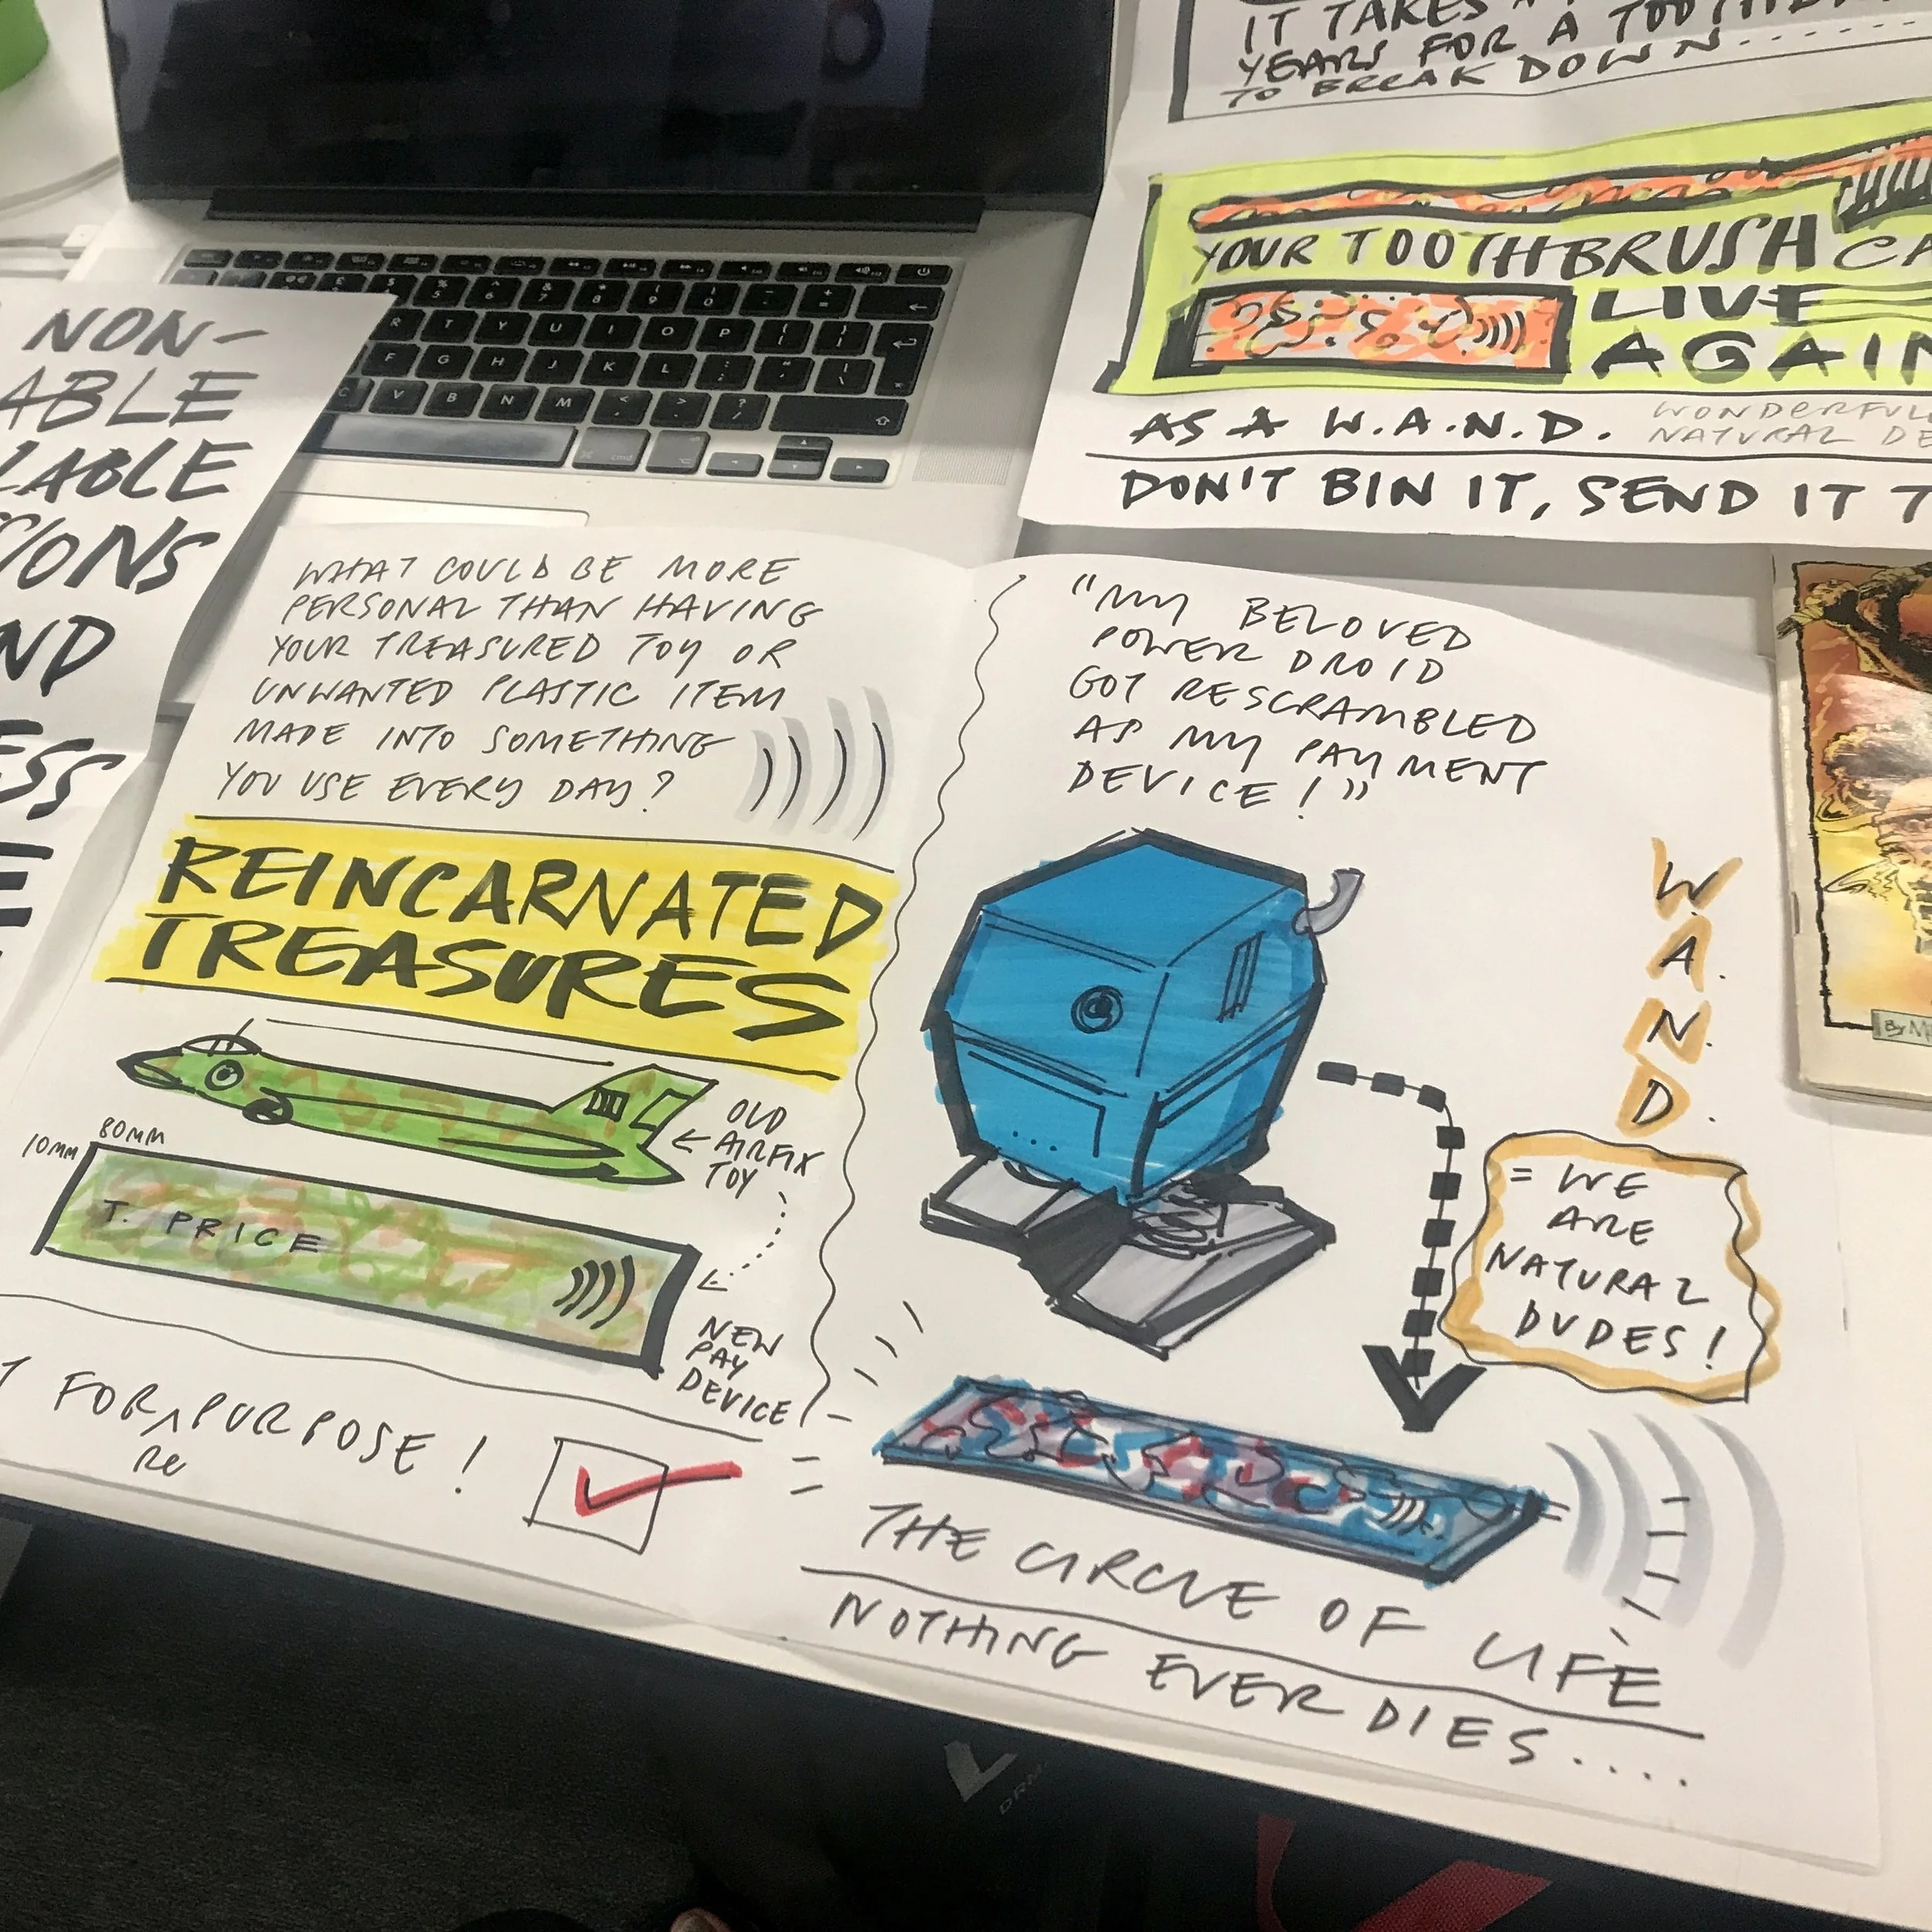 NON-
ABLE
LABLE
IONS
ND
ESS
E
IT TAKES
YEARS FOR A
TO BREAK DOWN........
YOUR TOOTHBRUSH CA
LIVE
AGAIN
AS A W.A.N.D. WONDERFUL
NATURAL DE
DON'T BIN IT, SEND IT T
WHAT COULD BE MORE
PERSONAL THAN HAVING
YOUR TREASURED TOY OR
UNWANTED PLASTIC ITEM
MADE INTO SOMETHING
YOU USE EVERY DAY?
REINCARNATED
TREASURES
OLD
AIRFIX
TOY
80MM
10MM
T. PRICE
NEW
PAY
DEVICE
T FOR ^ PURPOSE!
RE
"MY BELOVED
POWER DROID
GOT RESCRAMBLED
AS MY PAYMENT
DEVICE!"
W.
A.
N.
D.
= WE
ARE
NATURAL
DUDES!
THE CIRCLE OF LIFE
NOTHING EVER DIES.....
By